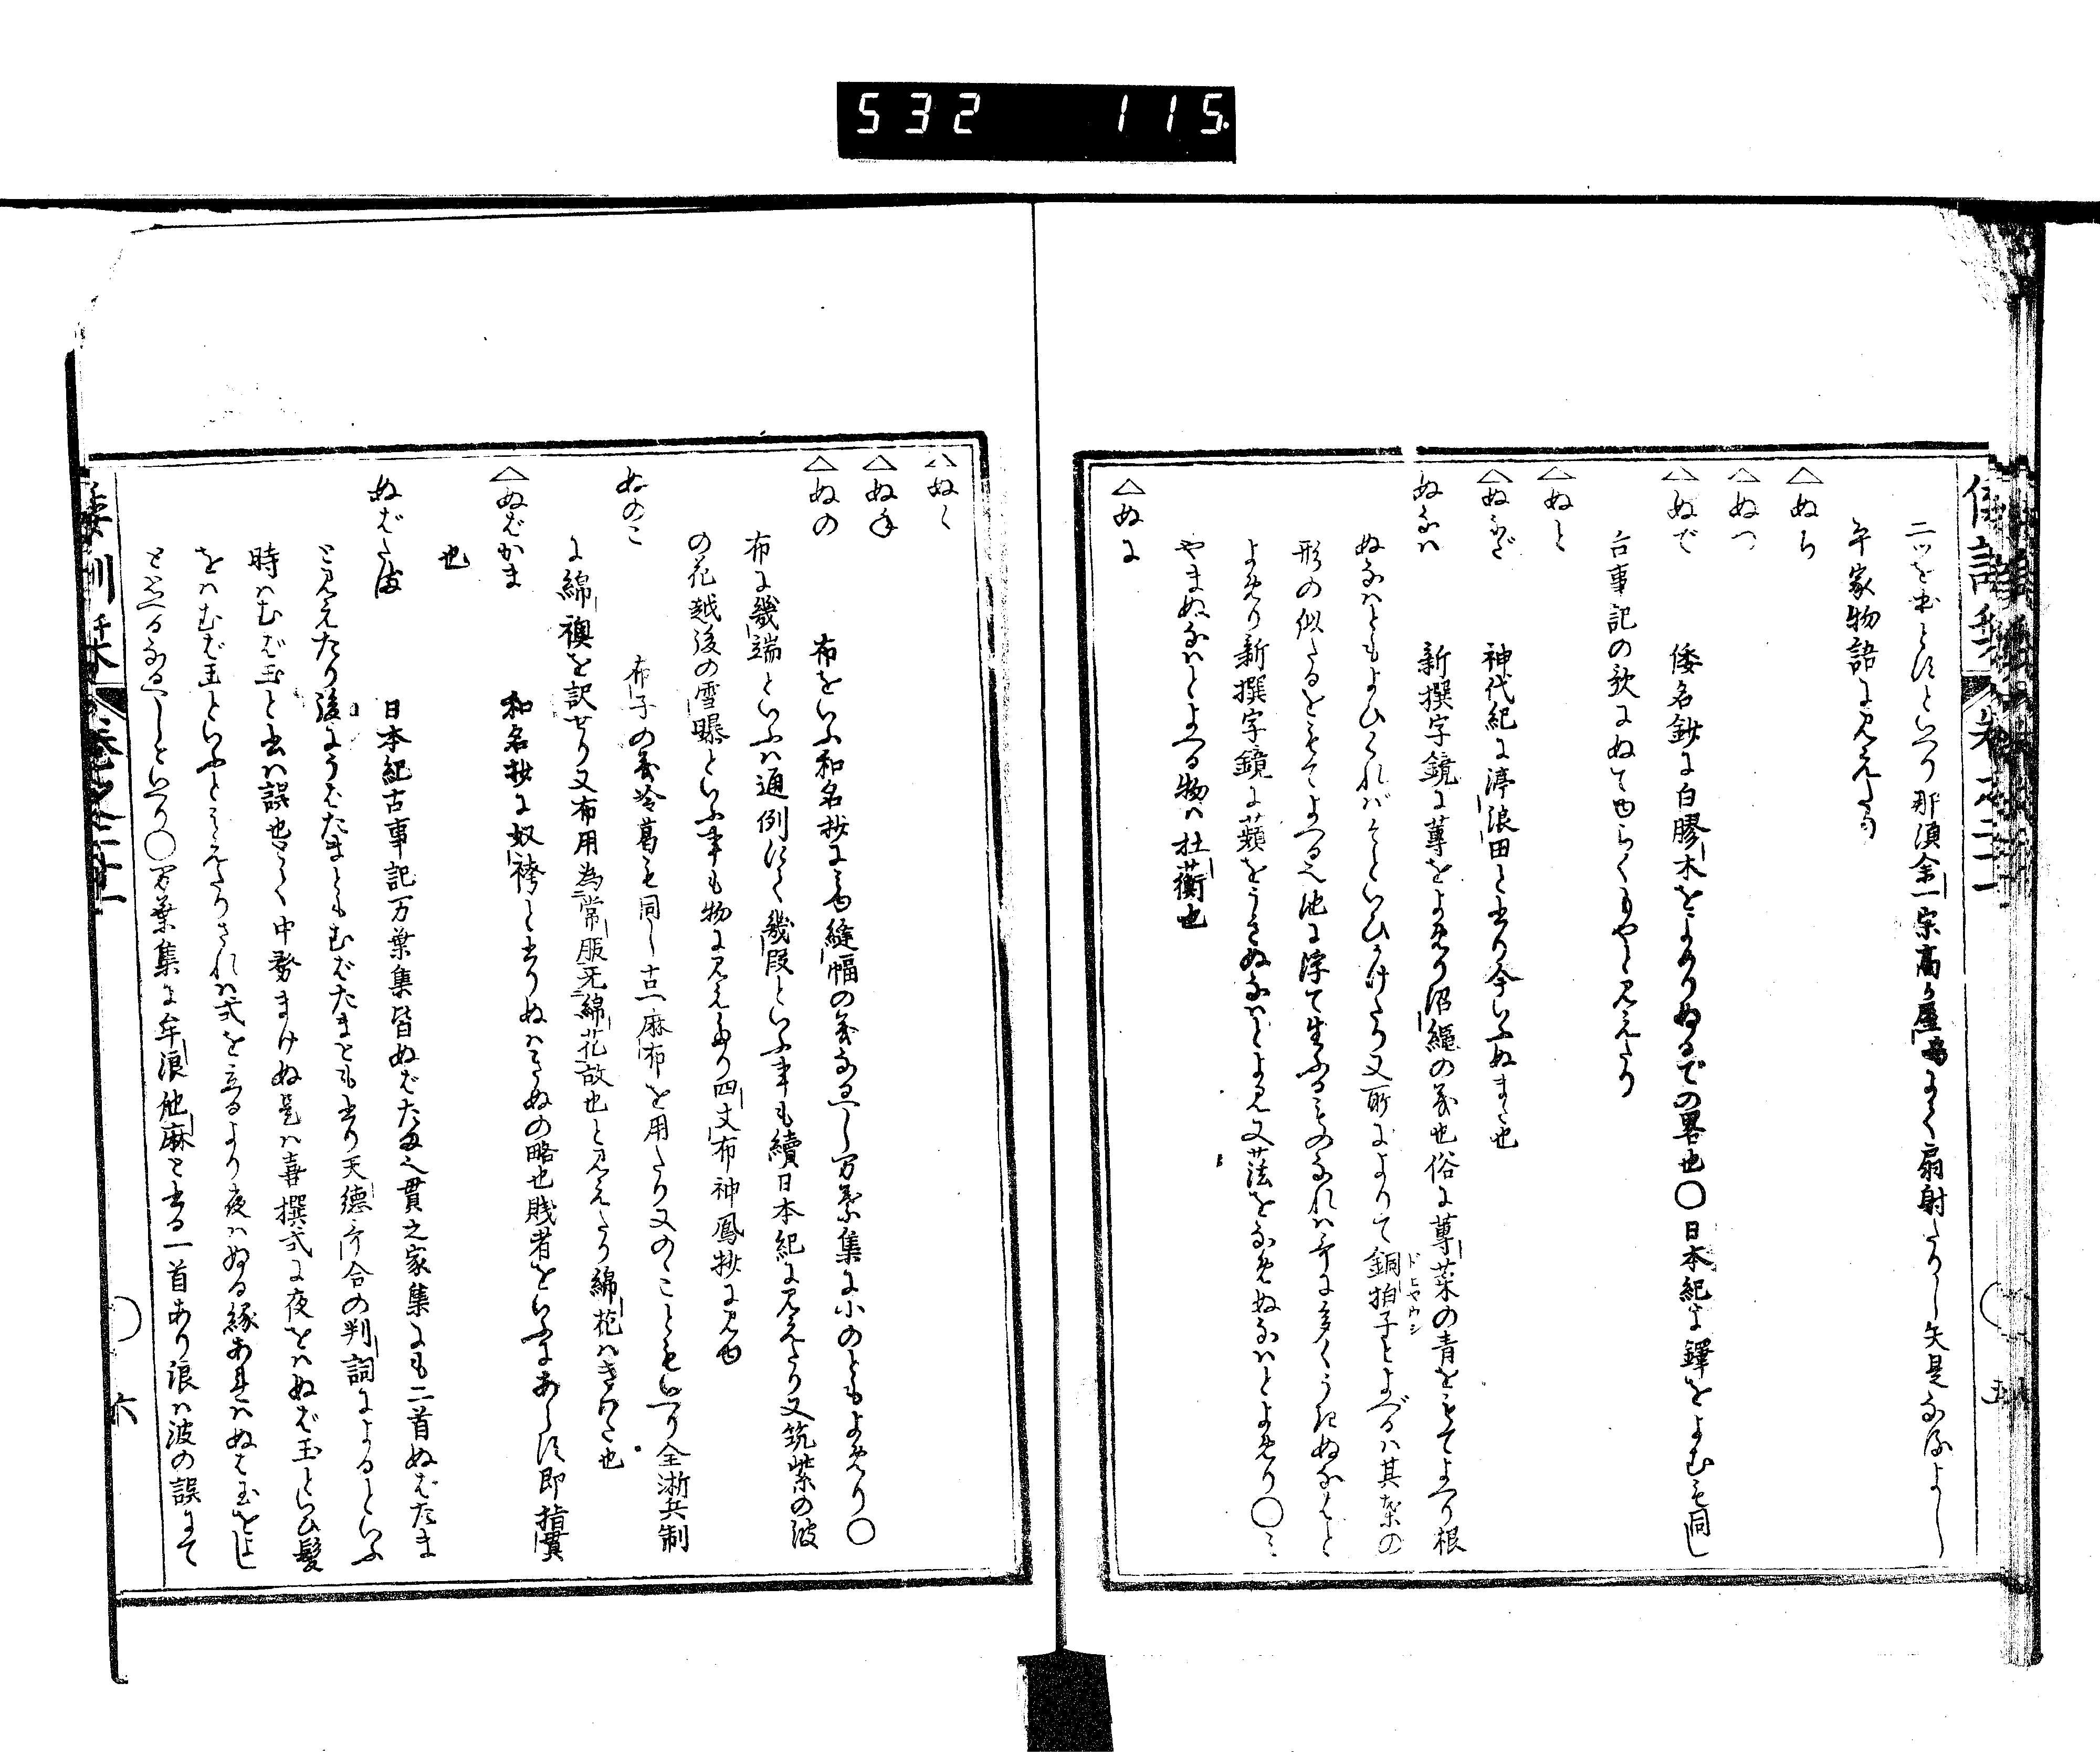 532 115.
二ツを出とすといへり那須余一宗高が屋島にて扇射たりし矢是なるよし
平家物語に見えたり
△ぬち
△ぬつ
△ぬで 倭名鈔に白膠木をよめりぬるでの畧也〇日本紀に鐸をよむも同し
古事記の歌にぬてゆらくもやと見えたり
△ぬと
△ぬなだ 神代紀に渟浪田と書り今いふぬまた也
ぬなは 新撰字鏡に蓴をよめり沼縄の義也俗に蓴菜の青をもてよへり根
ぬなはともよひくれバそといひかけたり又所によりて銅拍子とよべるハ其葉の
ドヒヤウシ
形の似たるをもてよへる也池に浮て生ふるものなれハ歌に多くうきぬなはと
よめり新撰字鏡に蘋をうきぬなはとよみ又𦶜をなめぬなはとよめり〇ミ
やまぬなはとよへる物ハ杜蘅也
△ぬに
△ぬく
△ぬね
△ぬの 布をいふ和名抄に見ゆ縫幅の義なるへし万葉集に小のともよめり〇
布に幾端といふハ通例にて幾段といふ事も續日本紀に見えたり又筑紫の波
の花越後の雪曝といふ事も物に見えたり四丈布神鳳抄に見ゆ
ぬのこ 布子の義冷葛も同し古へ麻布を用たり又のことといへり全淅兵制
に綿襖を訳せり又布用為常服无綿花故也と見えたり綿花ハきわた也
△ぬばかま 和名抄に奴袴と書りぬハきぬの略也賎者をいふにあらす即指貫
也
ぬばたま 日本紀古事記万葉集皆ぬばたま也貫之家集にも二首ぬばたま
と見えたり後にうばたまともむばたまとも書り天德歌合の判詞によるといふ
時ハむば玉と書ハ誤也とて中務まけぬ是ハ喜撰式に夜をハぬば玉といひ髪
をハむば玉といふと見えたりされハ式を守るより夜ハぬる緣あれハぬば玉をよし
と思へるなるへしといへり〇万葉集に牟浪他麻と書る一首あり浪ハ波の誤にて
倭訓栞 卷之廿二
六